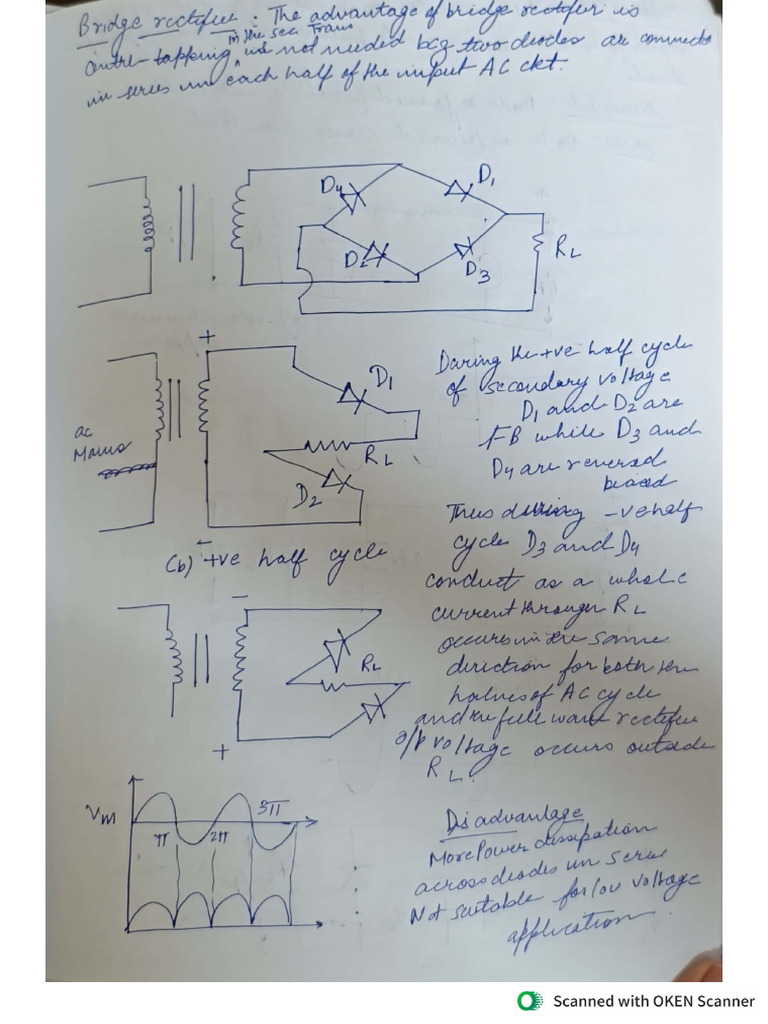 Bridge rectifier : The advantage of bridge rectifier is
in the sec Trans
centre-tapping is not needed bcz two diodes are connected
in series in each half of the input AC ckt.
D4
D1
D2
D3
RL
+
D1
RL
D2
ac
Mains
-
(b) +ve half cycle
During the +ve half cycle
of secondary voltage
D1 and D2 are
FB while D3 and
D4 are reversed
biased
Thus during -ve half
cycle D3 and D4
conduct as a whole
current through RL
occurs in the same
direction for both the
halves of AC cycle
and the full wave rectifier
o/p voltage occurs outside
RL.
-
RL
+
Vm
π
2π
3π
Disadvantage
More Power dissipation
across diodes in series
Not suitable for low voltage
application.
Scanned with OKEN Scanner